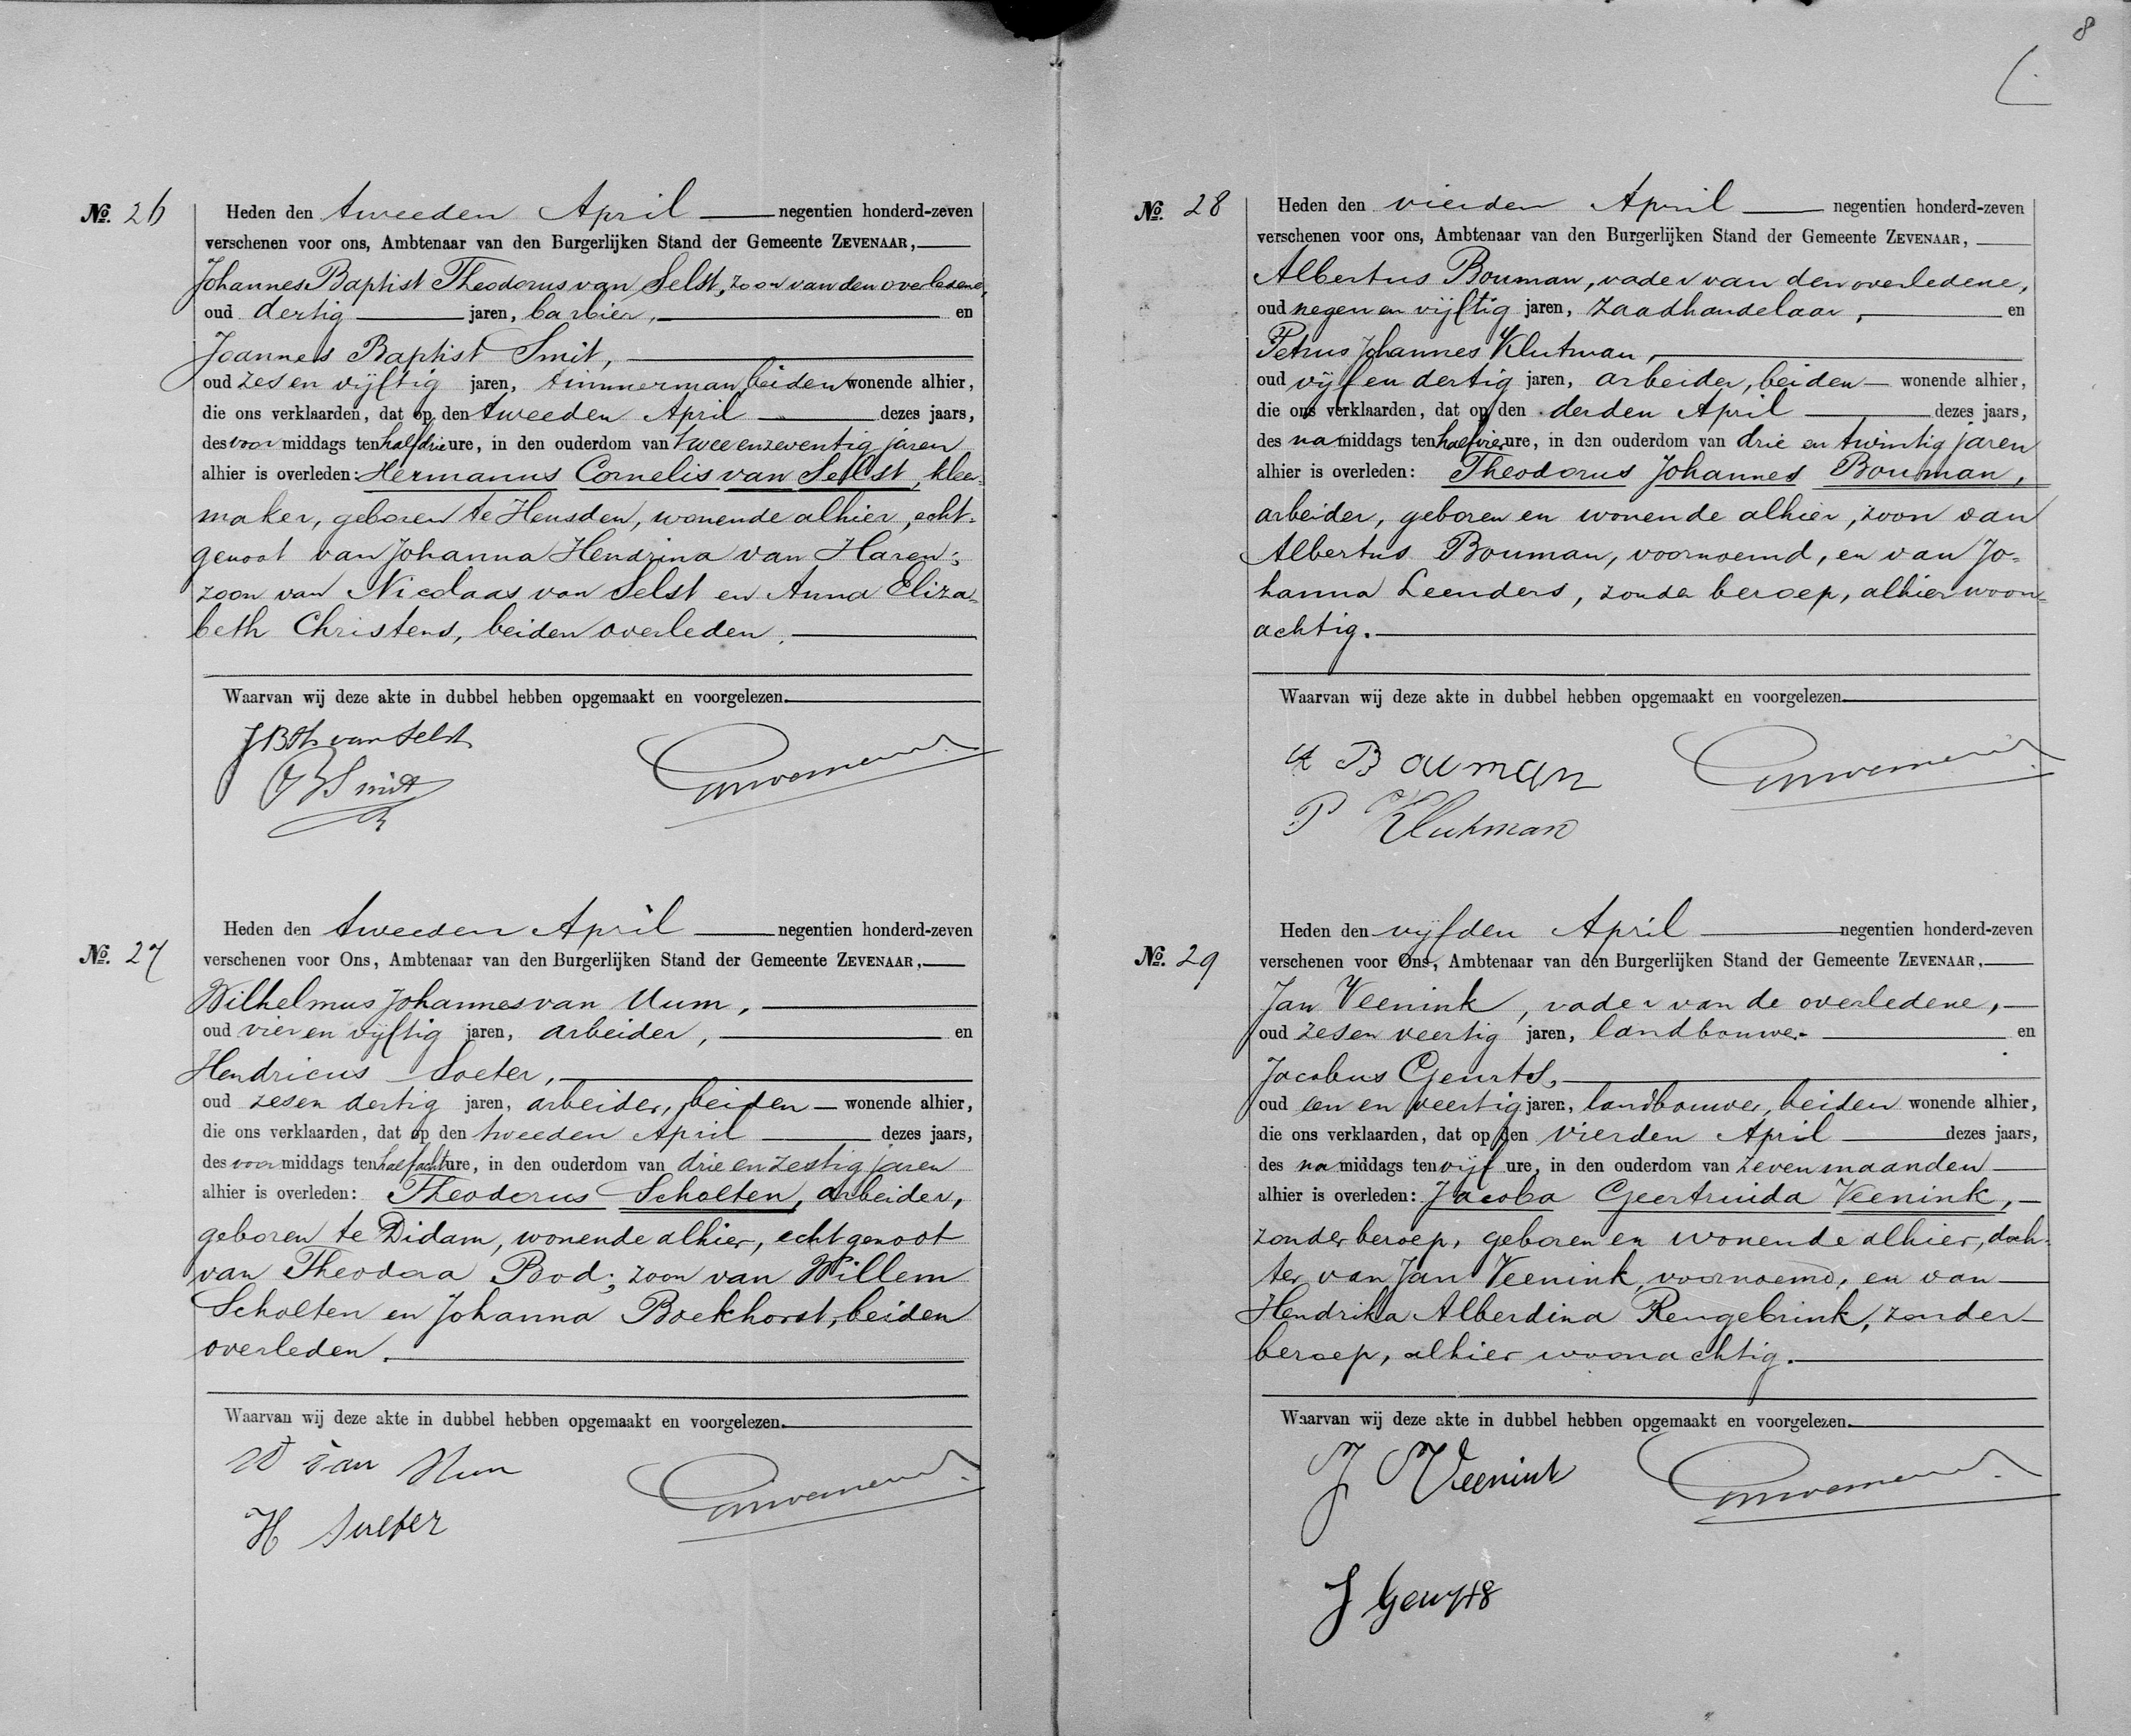 No. 26
Heden den tweeden April negentien honderd-zeven
verschenen voor ons, Ambtenaar van den Burgerlijken Stand der Gemeente ZEVENAAR,
Johannes Baptist Theodorus van Selst, zoon van den overledene,
oud dertig jaren, barbier, en
Joannes Baptist Smit,
oud zes en vijftig jaren, timmerman, beiden wonende alhier,
die ons verklaarden, dat op den tweeden April dezes jaars,
des voormiddags ten half drie ure, in den ouderdom van twee en zeventig jaren
alhier is overleden: Hermanus Cornelis van Selst, kleer-
maker, geboren te Heusden, wonende alhier, echt-
genoot van Johanna Hendrina van Haren;
zoon van Nicolaas van Selst en Anna Eliza-
beth Christens, beiden overleden.
Waarvan wij deze akte in dubbel hebben opgemaakt en voorgelezen.
J B Th van Selst
J B Smit
No. 27
Heden den tweeden April negentien honderd-zeven
verschenen voor Ons, Ambtenaar van den Burgerlijken Stand der Gemeente ZEVENAAR,
Wilhelmus Johannes van Uum,
oud vier en vijftig jaren, arbeider, en
Hendricus Soeter,
oud zes en dertig jaren, arbeider, beiden wonende alhier,
die ons verklaarden, dat op den tweeden April dezes jaars,
des voormiddags ten half acht ure, in den ouderdom van drie en zestig jaren
alhier is overleden: Theodorus Scholten, arbeider,
geboren te Didam, wonende alhier, echtgenoot
van Theodora Bod; zoon van Willem
Scholten en Johanna Boekhorst, beiden
overleden.
Waarvan wij deze akte in dubbel hebben opgemaakt en voorgelezen.
W van Uum
H Sueter
8
No. 28
Heden den vierden April negentien honderd-zeven
verschenen voor ons, Ambtenaar van den Burgerlijken Stand der Gemeente ZEVENAAR,
Albertus Bouman, vader van den overledene,
oud negen en vijftig jaren, zaadhandelaar, en
Petrus Johannes Klutman,
oud vijf en dertig jaren, arbeider, beiden wonende alhier,
die ons verklaarden, dat op den derden April dezes jaars,
des namiddags ten half vier ure, in den ouderdom van drie en twintig jaren
alhier is overleden: Theodorus Johannes Bouman,
arbeider, geboren en wonende alhier, zoon van
Albertus Bouman, voornoemd, en van Jo-
hanna Leenders, zonder beroep, alhier woon-
achtig.
Waarvan wij deze akte in dubbel hebben opgemaakt en voorgelezen.
A Bouman
P Klutman
No. 29
Heden den vijfden April negentien honderd-zeven
verschenen voor Ons, Ambtenaar van den Burgerlijken Stand der Gemeente ZEVENAAR,
Jan Veenink, vader van de overledene,
oud zes en veertig jaren, landbouwer en
Jacobus Geurts,
oud een en veertig jaren, landbouwer, beiden wonende alhier,
die ons verklaarden, dat op den vierden April dezes jaars,
des namiddags ten vijf ure, in den ouderdom van zeven maanden
alhier is overleden: Jacoba Geertruida Veenink,
zonder beroep, geboren en wonende alhier, doch-
ter van Jan Veenink, voornoemd, en van
Hendrika Alberdina Rengebrink, zonder
beroep, alhier woonachtig.
Waarvan wij deze akte in dubbel hebben opgemaakt en voorgelezen.
J Veenink
J Geurts